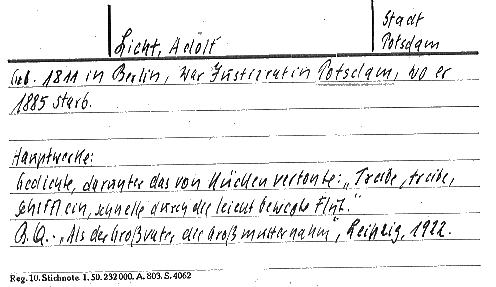 Stadt
Licht, Adolf Potsdam
Geb. 1811 in Berlin, war Justizrat in Potsdam, wo er
1885 starb.
Hauptwerke:
Gedichte, darunter das von Kücken vertonte: „Treibe, treibe,
Schifflein, schnelle durch die leicht bewegte Flut."
B.Q.: „Als der Großvater die Großmutter nahm", Leipzig, 1922.
Reg. 10. Stichnote. 1. 50. 232000. A. 803. S. 4062